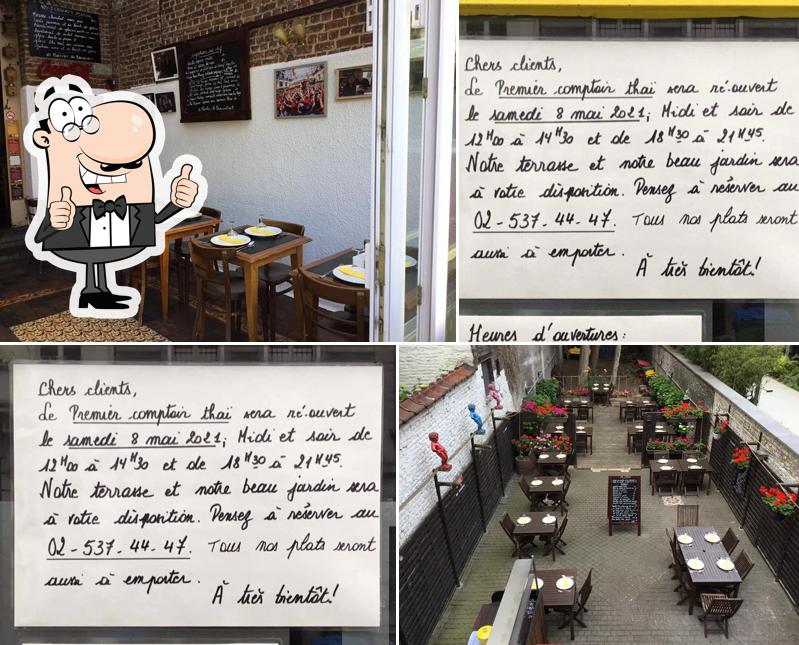 Chers clients,
Le Premier comptoir thaï sera ré.ouvert
le samedi 8 mai 2021; Midi et soir de
12H00 à 14H30 et de 18H30 à 21H45.
Notre terrasse et notre beau jardin sera
à votre disposition. Pensez à réserver au
02-537-44-47. Tous nos plats seront
aussi à emporter.
À très bientôt!
Heures d'ouvertures:
Chers clients,
Le Premier comptoir thaï sera ré.ouvert
le samedi 8 mai 2021; Midi et soir de
12H00 à 14H30 et de 18H30 à 21H45.
Notre terrasse et notre beau jardin sera
à votre disposition. Pensez à réserver au
02-537-44-47. Tous nos plats seront
aussi à emporter.
À très bientôt!